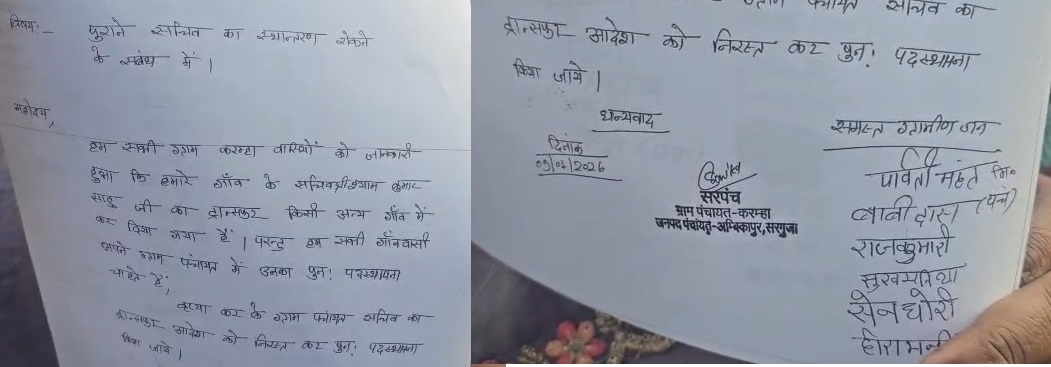 विषय:- पुराने सचिव का स्थान्तरण रोकने
के संबंध में |
महोदय,
हम सभी ग्राम करम्हा वासियों को जानकारी
हुआ कि हमारे गाँव के सचिव श्री श्याम कुमार
साहु जी का ट्रान्सफर किसी अन्य गाँव में
कर दिया गया हैं | परन्तु हम सभी गाँववासी
अपने ग्राम पंचायत में उनका पुन: पदस्थापना
चाहते हैं,
कृप्या कर के ग्राम पंचायत सचिव का
ट्रान्सफर आदेश को निरस्त कर पुन: पदस्थापना
किया जाये |
ग्राम पंचायत सचिव का
ट्रान्सफर आदेश को निरस्त कर पुन: पदस्थापना
किया जाये |
धन्यवाद
दिनांक
समस्त ग्रामीण जन
सरपंच
ग्राम पंचायत-करम्हा
जनपद पंचायत-अम्बिकापुर, सरगुजा
पार्वती महंत
(पंच)
राजकुमारी
सुखमतिया